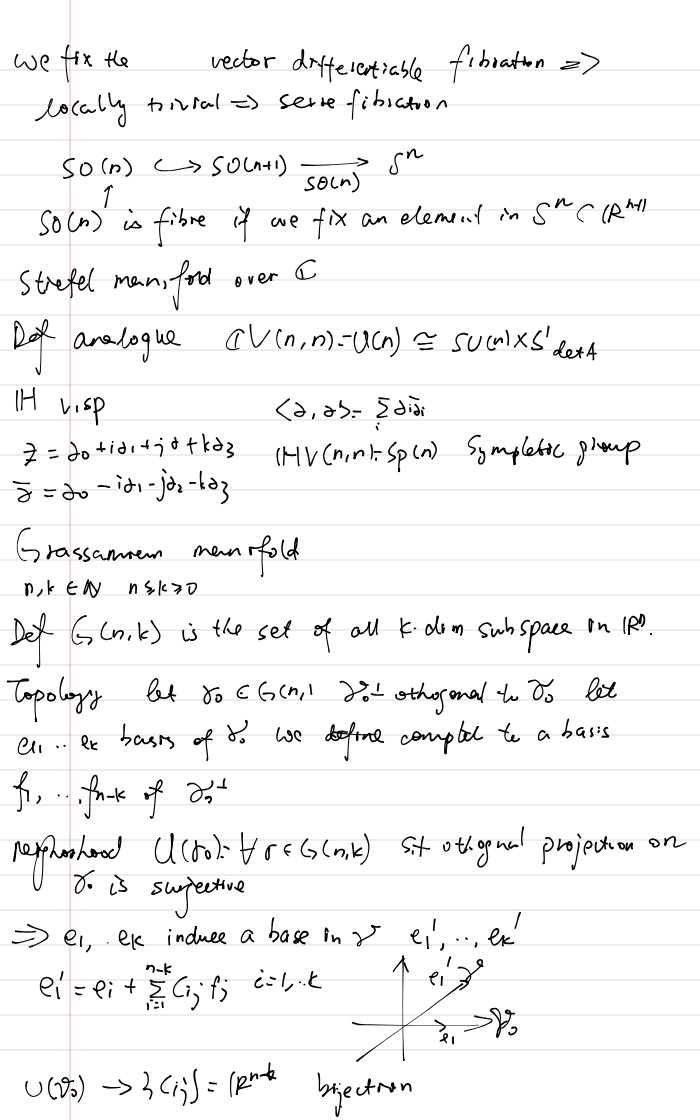 we fix the vector differentiable fibration =>
locally trivial => serre fibration
SO(n) ↪ SO(n+1) → S^n
SO(n)
↑
SO(n) is fibre if we fix an element in S^n ⊂ ℝ^{n+1}
Stiefel manifold over ℂ
Def analogue ℂV(n,n) = U(n) ≅ SU(n) × S^1 det A
ℍ v.sp <a, a> = Σ_i a_i ā_i
z = a_0 + i a_1 + j a + k a_3 ℍV(n,n) = Sp(n) Sympletic group
z̄ = a_0 - i a_1 - j a_2 - k a_3
Grassamnem manifold
n, k ∈ ℕ n ≥ k ≥ 0
Def G(n,k) is the set of all k-dim subspace in ℝ^n.
Topology let γ_0 ∈ G(n, γ_0^⊥ othogonal to γ_0 let
e_1, .. e_k basis of γ_0 we complet to a basis
f_1, ..., f_{n-k} of γ_0^⊥
U(γ_0) = ∀ γ ∈ G(n,k) s.t othognal projection on
γ_0 is surjective
=> e_1, .. e_k induce a base in γ e_1', .., e_k'
e_i' = e_i + Σ_{i=1}^{n-k} C_{ij} f_j i=1, .. k
e_1' γ
e_1 γ_0
U(γ_0) → {C_{ij}} = ℝ^{n-k} bijection